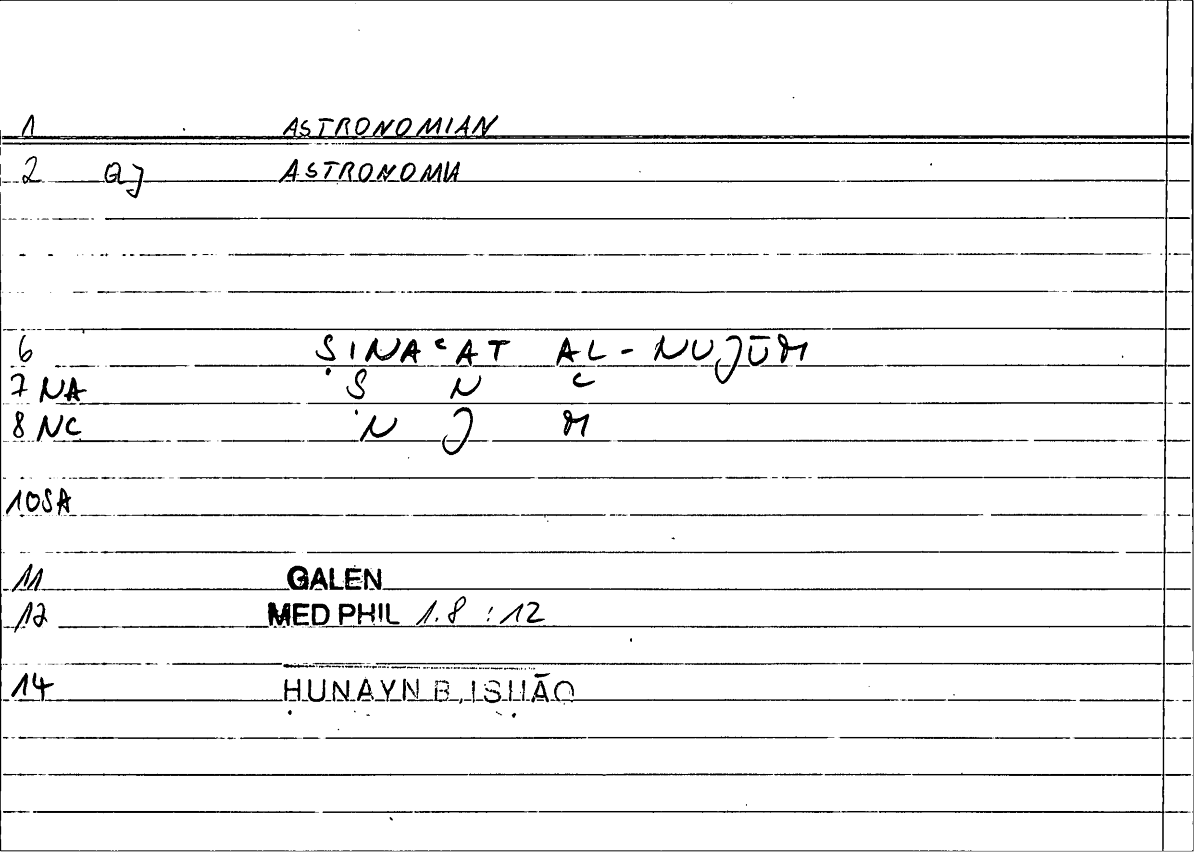 1 ASTRONOMIAN
2 QJ ASTRONOMIA
6 ṢINAʿAT AL-NUJŪM
7 NA S N ʿ
8 NC N J M
10SA
11 GALEN
12 MED PHIL 1.8 : 12
14 ḤUNAYN B. ISḤĀQ